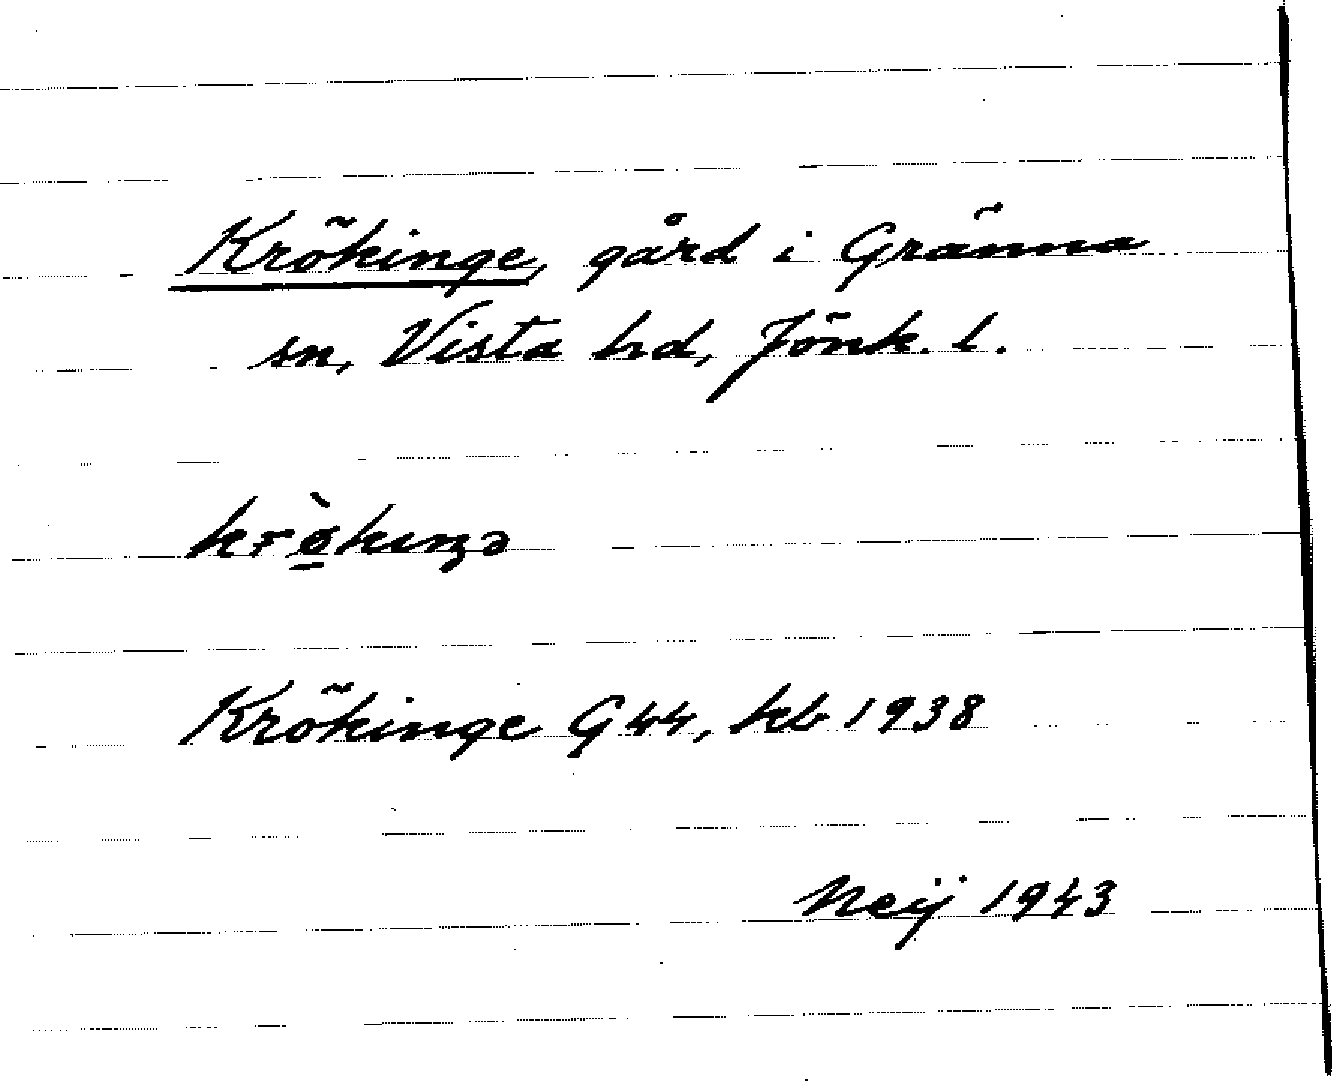 Krökinge, gård i Gränna
sn, Vista hd, Jönk. l.
krø̱̀kıŋə
Krökinge G44, kb 1938
Neij 1943